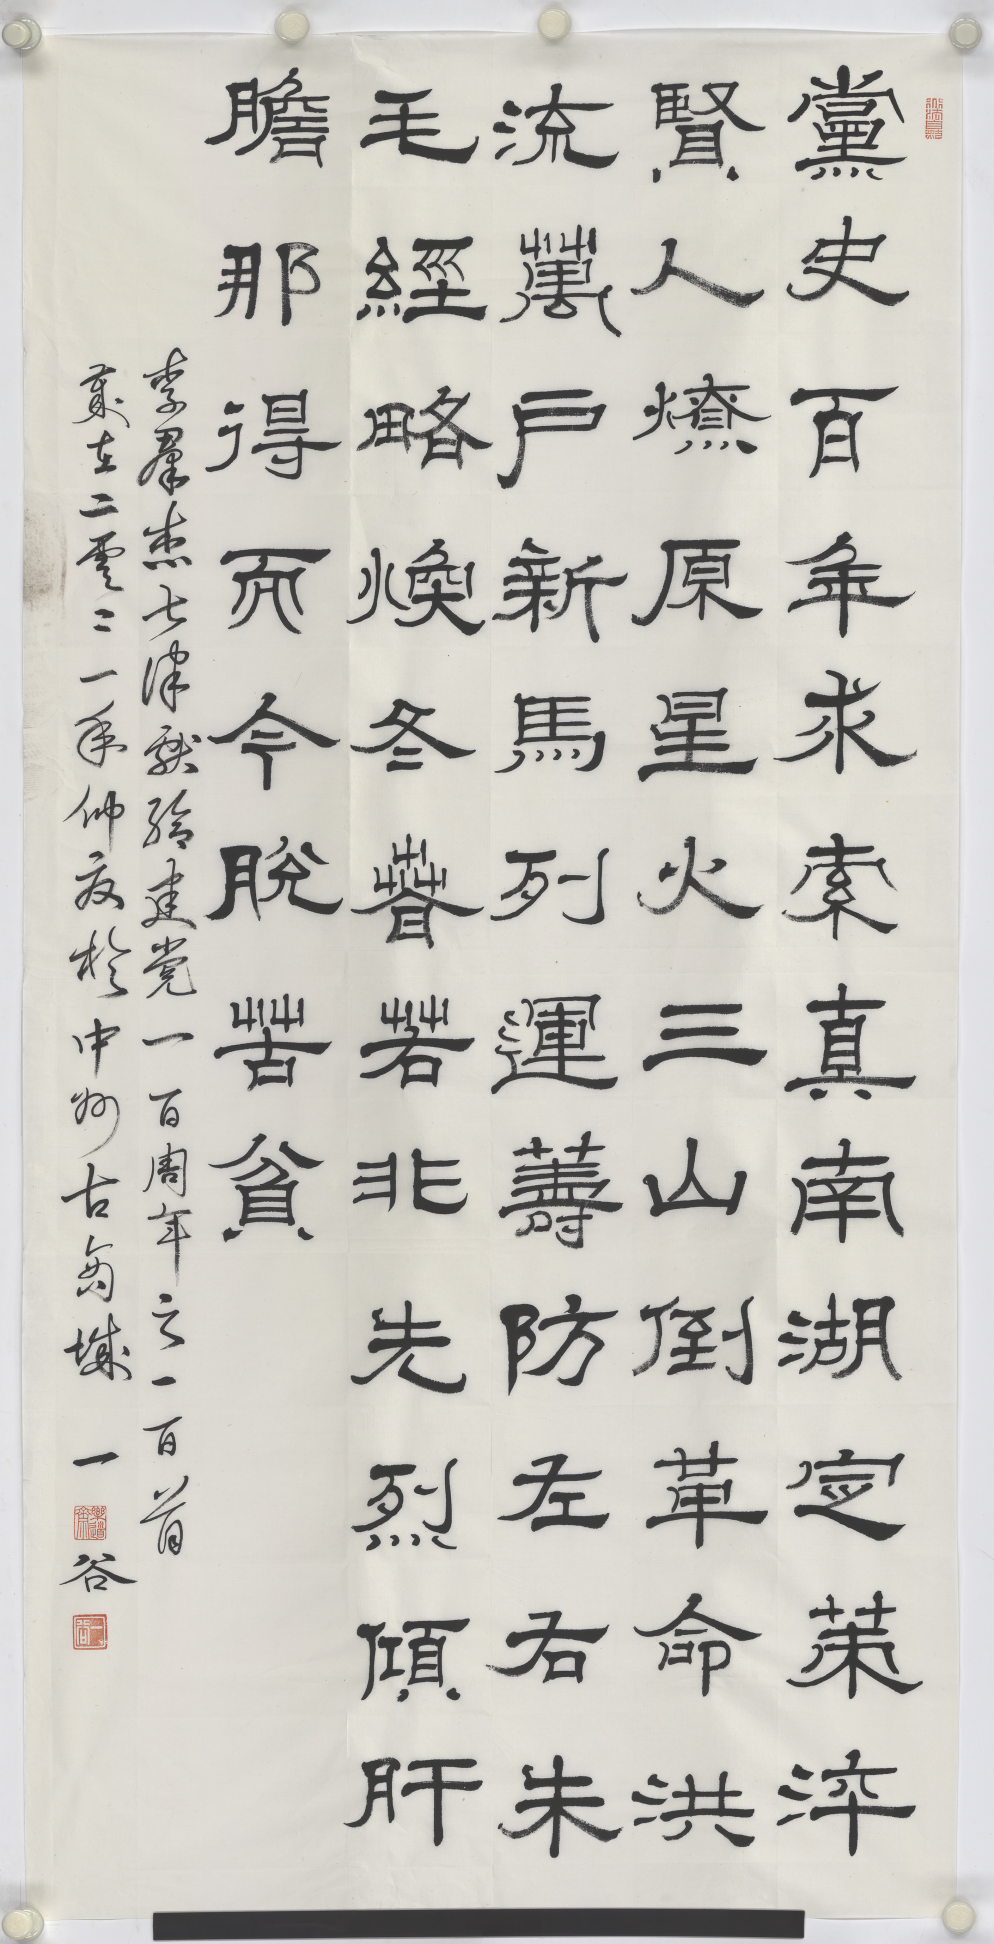 黨史百年求索真南湖定策淬
賢人燎原星火三山倒革命洪
流萬戶新馬列運籌防左右朱
毛經略煥冬春若非先烈傾肝
膽那得而今脫苦貧
李羣杰七律獻給建党一百周年之一百首
歲在二零二一年仲夏於中州古商城
一谷